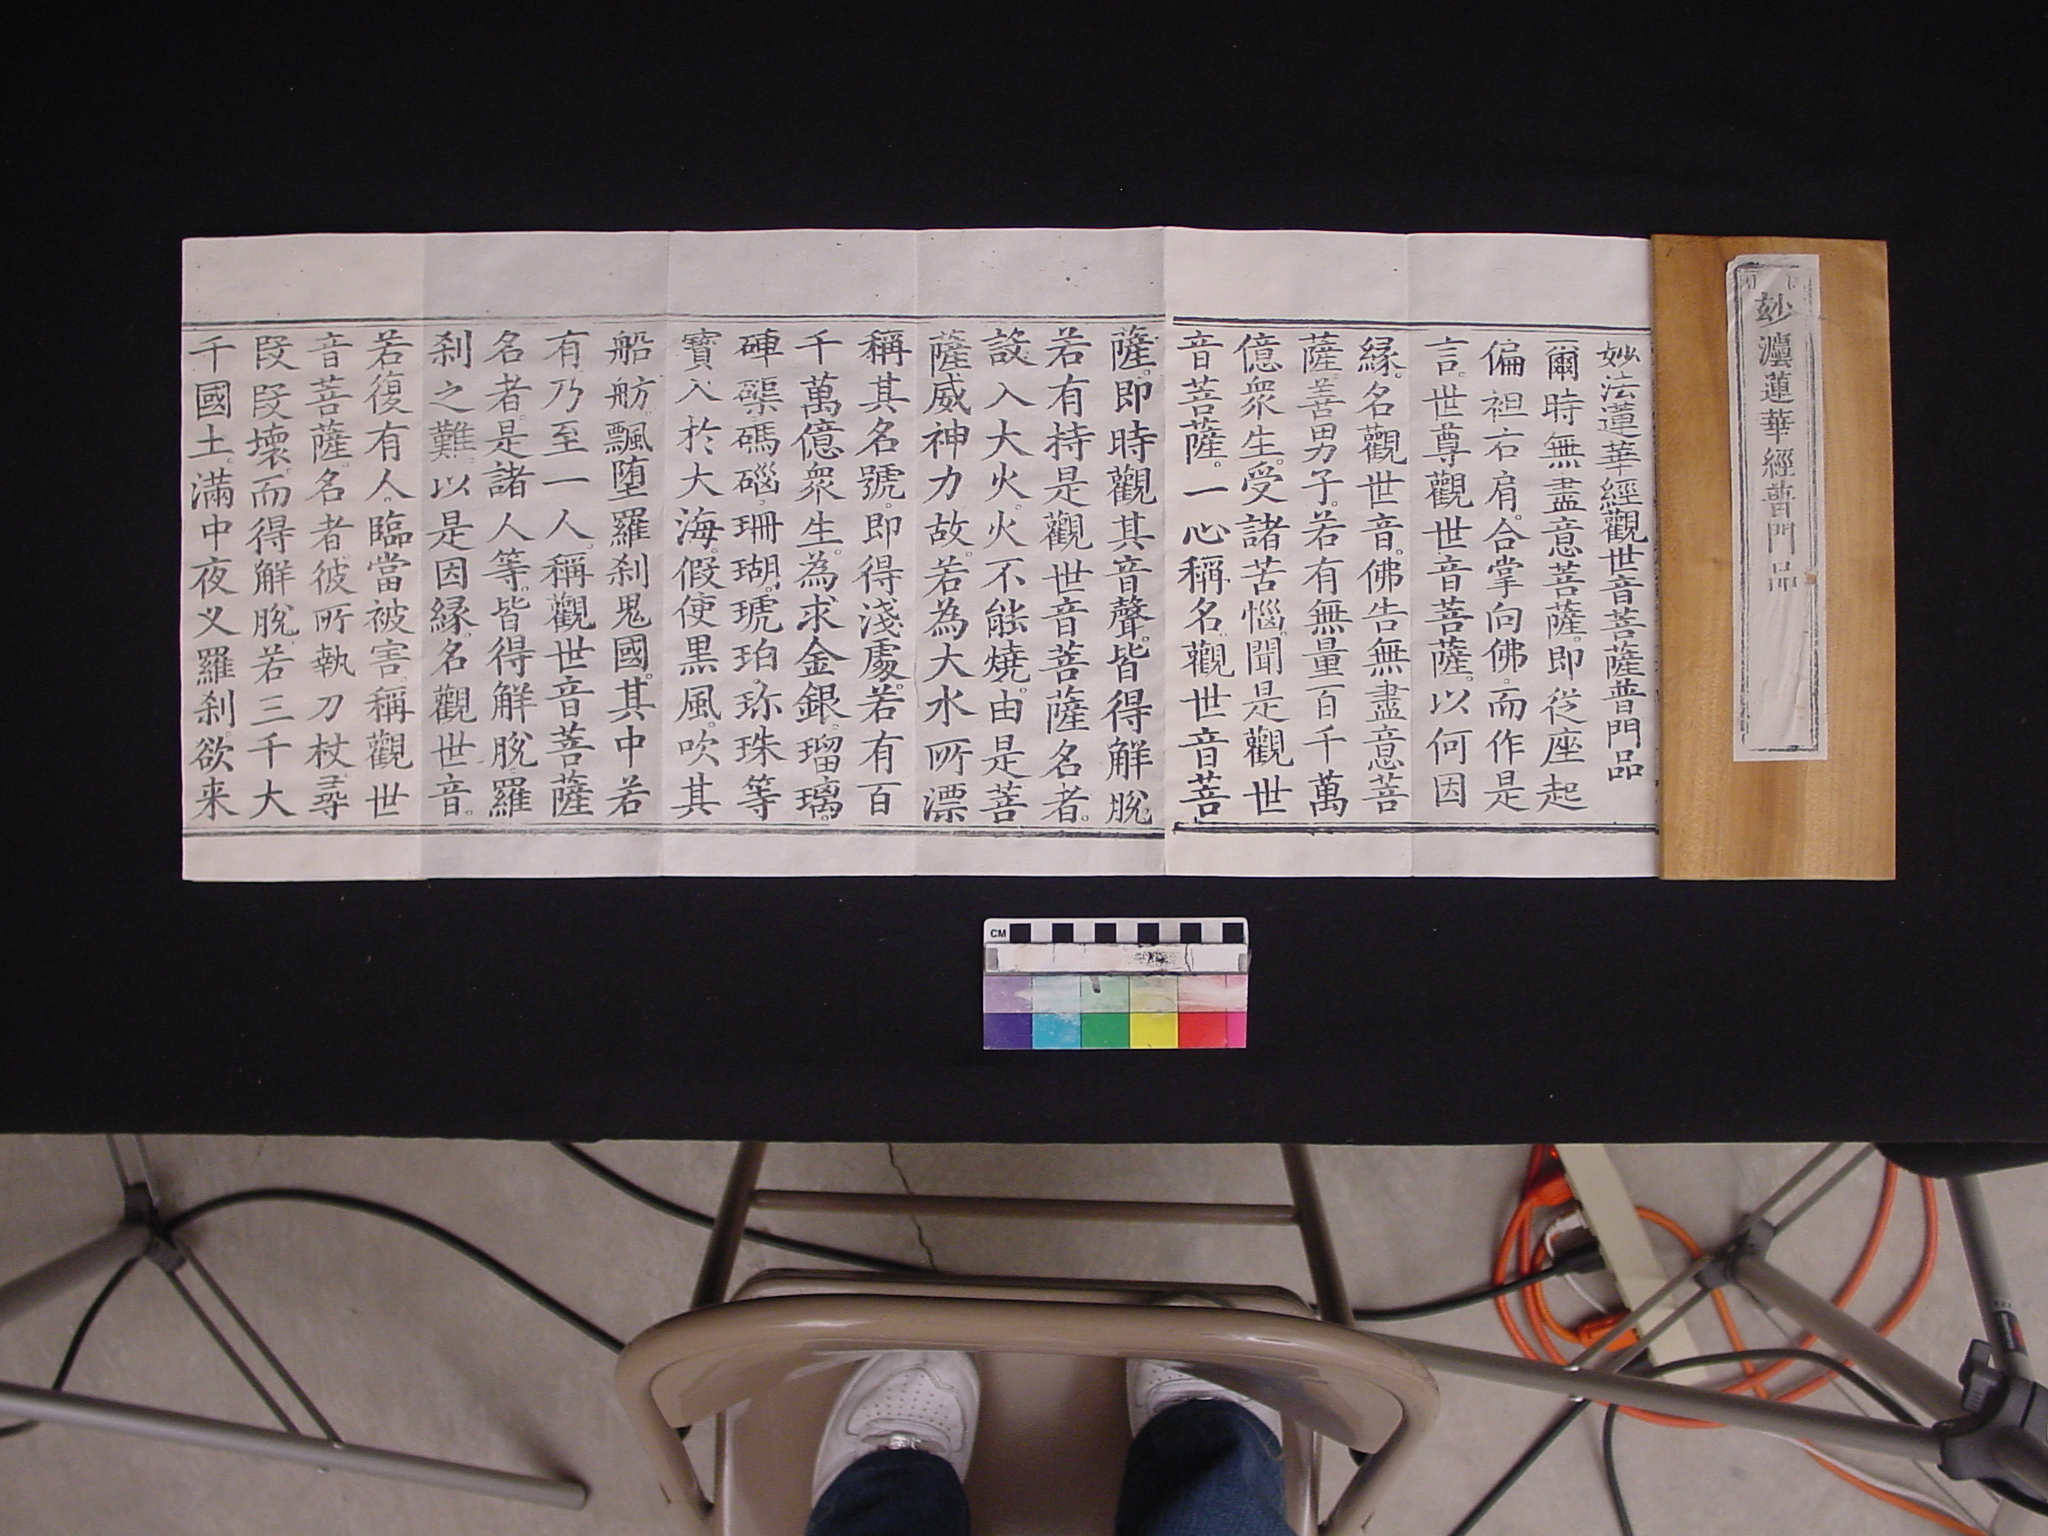 妙法蓮華經普門品
妙法蓮華經觀世音菩薩普門品
爾時無盡意菩薩。即從座起
偏袒右肩。合掌向佛。而作是
言。世尊觀世音菩薩。以何因
緣。名觀世音。佛告無盡意菩
薩。善男子。若有無量百千萬
億眾生。受諸苦惱。聞是觀世
音菩薩。一心稱名。觀世音菩
薩。即時觀其音聲。皆得解脫
若有持是觀世音菩薩名者。
設入大火。火不能燒。由是菩
薩威神力故。若為大水所漂
稱其名號。即得淺處。若有百
千萬億眾生。為求金銀。瑠璃。
硨磲。碼碯。珊瑚。琥珀。珎珠等
寶。入於大海。假使黑風。吹其
船舫。飄堕羅刹鬼國。其中若
有乃至一人。稱觀世音菩薩
名者。是諸人等。皆得解脫羅
刹之難。以是因緣。名觀世音。
若復有人。臨當被害。稱觀世
音菩薩。名者。彼所執刀杖尋
段段壞。而得解脫。若三千大
千國土。滿中夜叉羅刹。欲来
CM